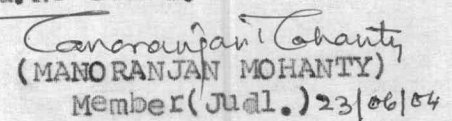 Manoranjan Mohanty
(MANORANJAN MOHANTY)
Member(Judl.) 23/06/04